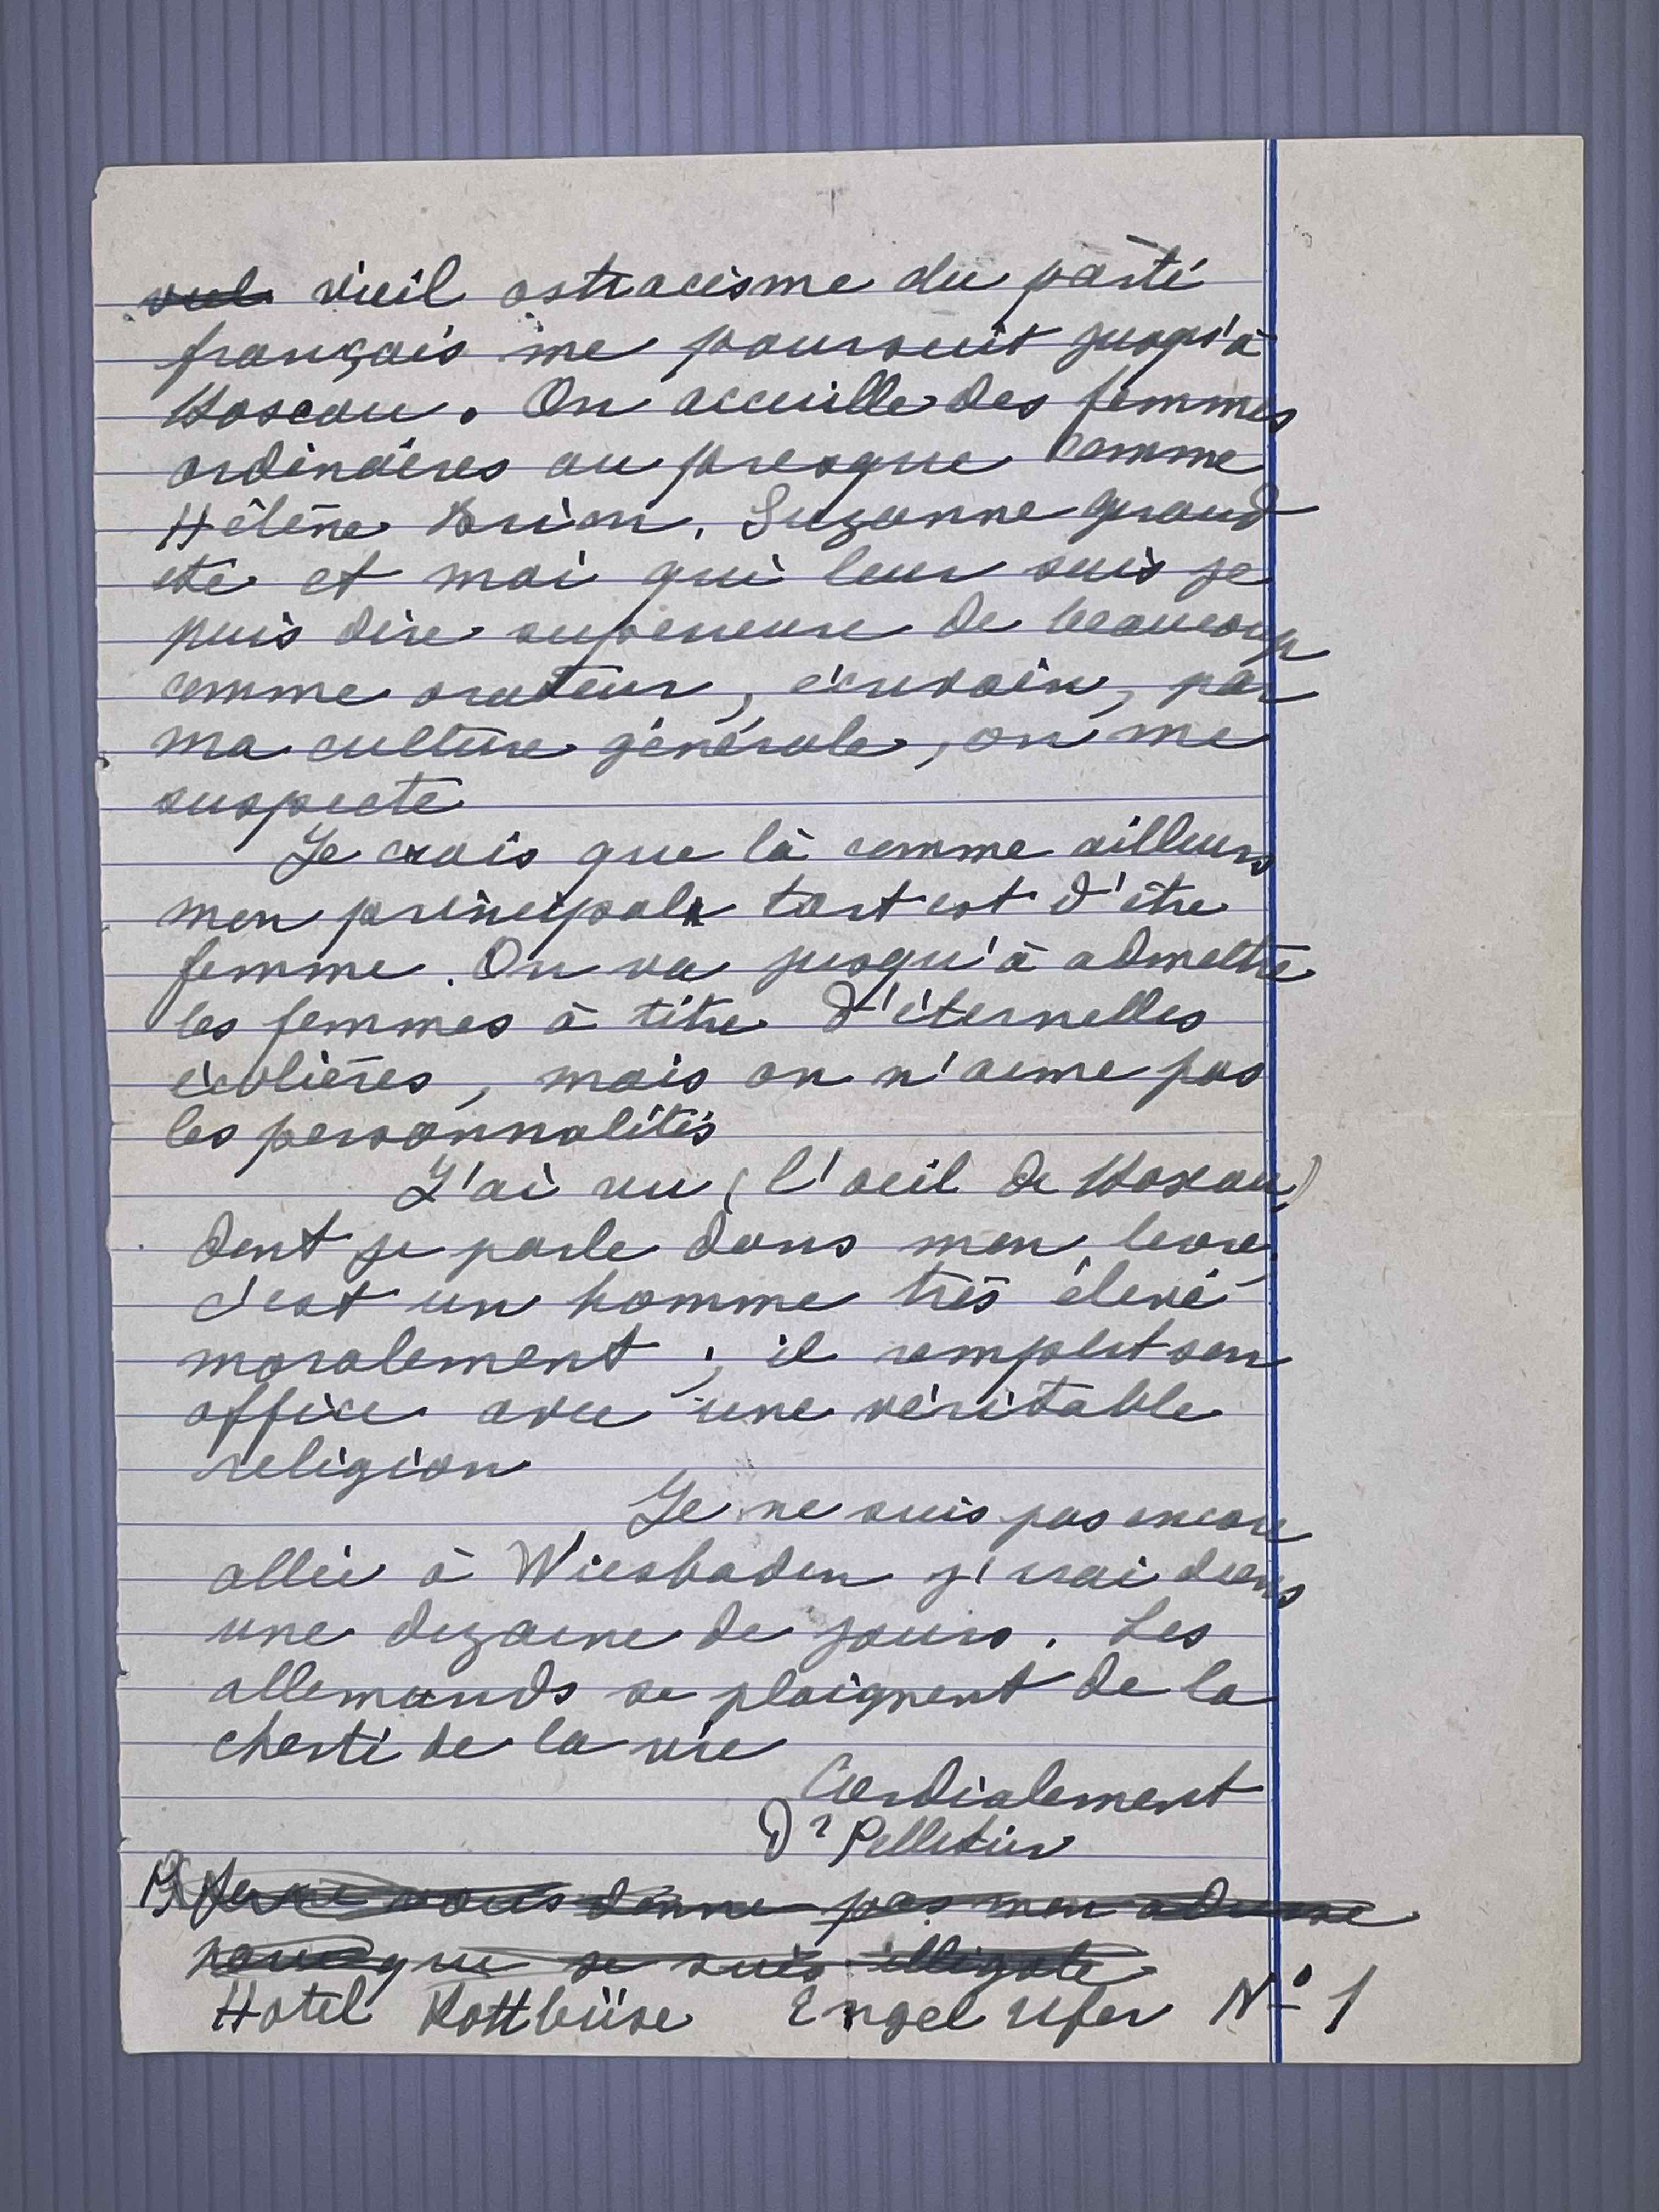 vieil vieil ostracisme du parti
français me poursuit jusqu'à
Moscou. On accueille des femmes
ordinaires ou presque comme
Hélène Brion, Suzanne Giraud
etc et moi qui leur suis je
puis dire superieure de beaucoup
comme orateur, écrivain, par
ma culture générale, on me
suspecte
Je crois que là comme ailleurs
mon principal tort est d'être
femme. On va jusqu'à admettre
les femmes à titre d'éternelles
écolières, mais on n'aime pas
les personnalités
J'ai vu (l'oeil de Moscou)
dont je parle dans mon livre,
c'est un homme très élevé
moralement ; il remplit son
office avec une véritable
religion
Je ne suis pas encore
allée à Wiesbaden j'irai dans
une dizaine de jours. Les
allemands se plaignent de la
cherté de la vie
Cordialement
Dr Pelletier
Je ne vous donne pas mon adresse
parce que je suis illégale
Hotel Kottbüse Engel Ufer No 1